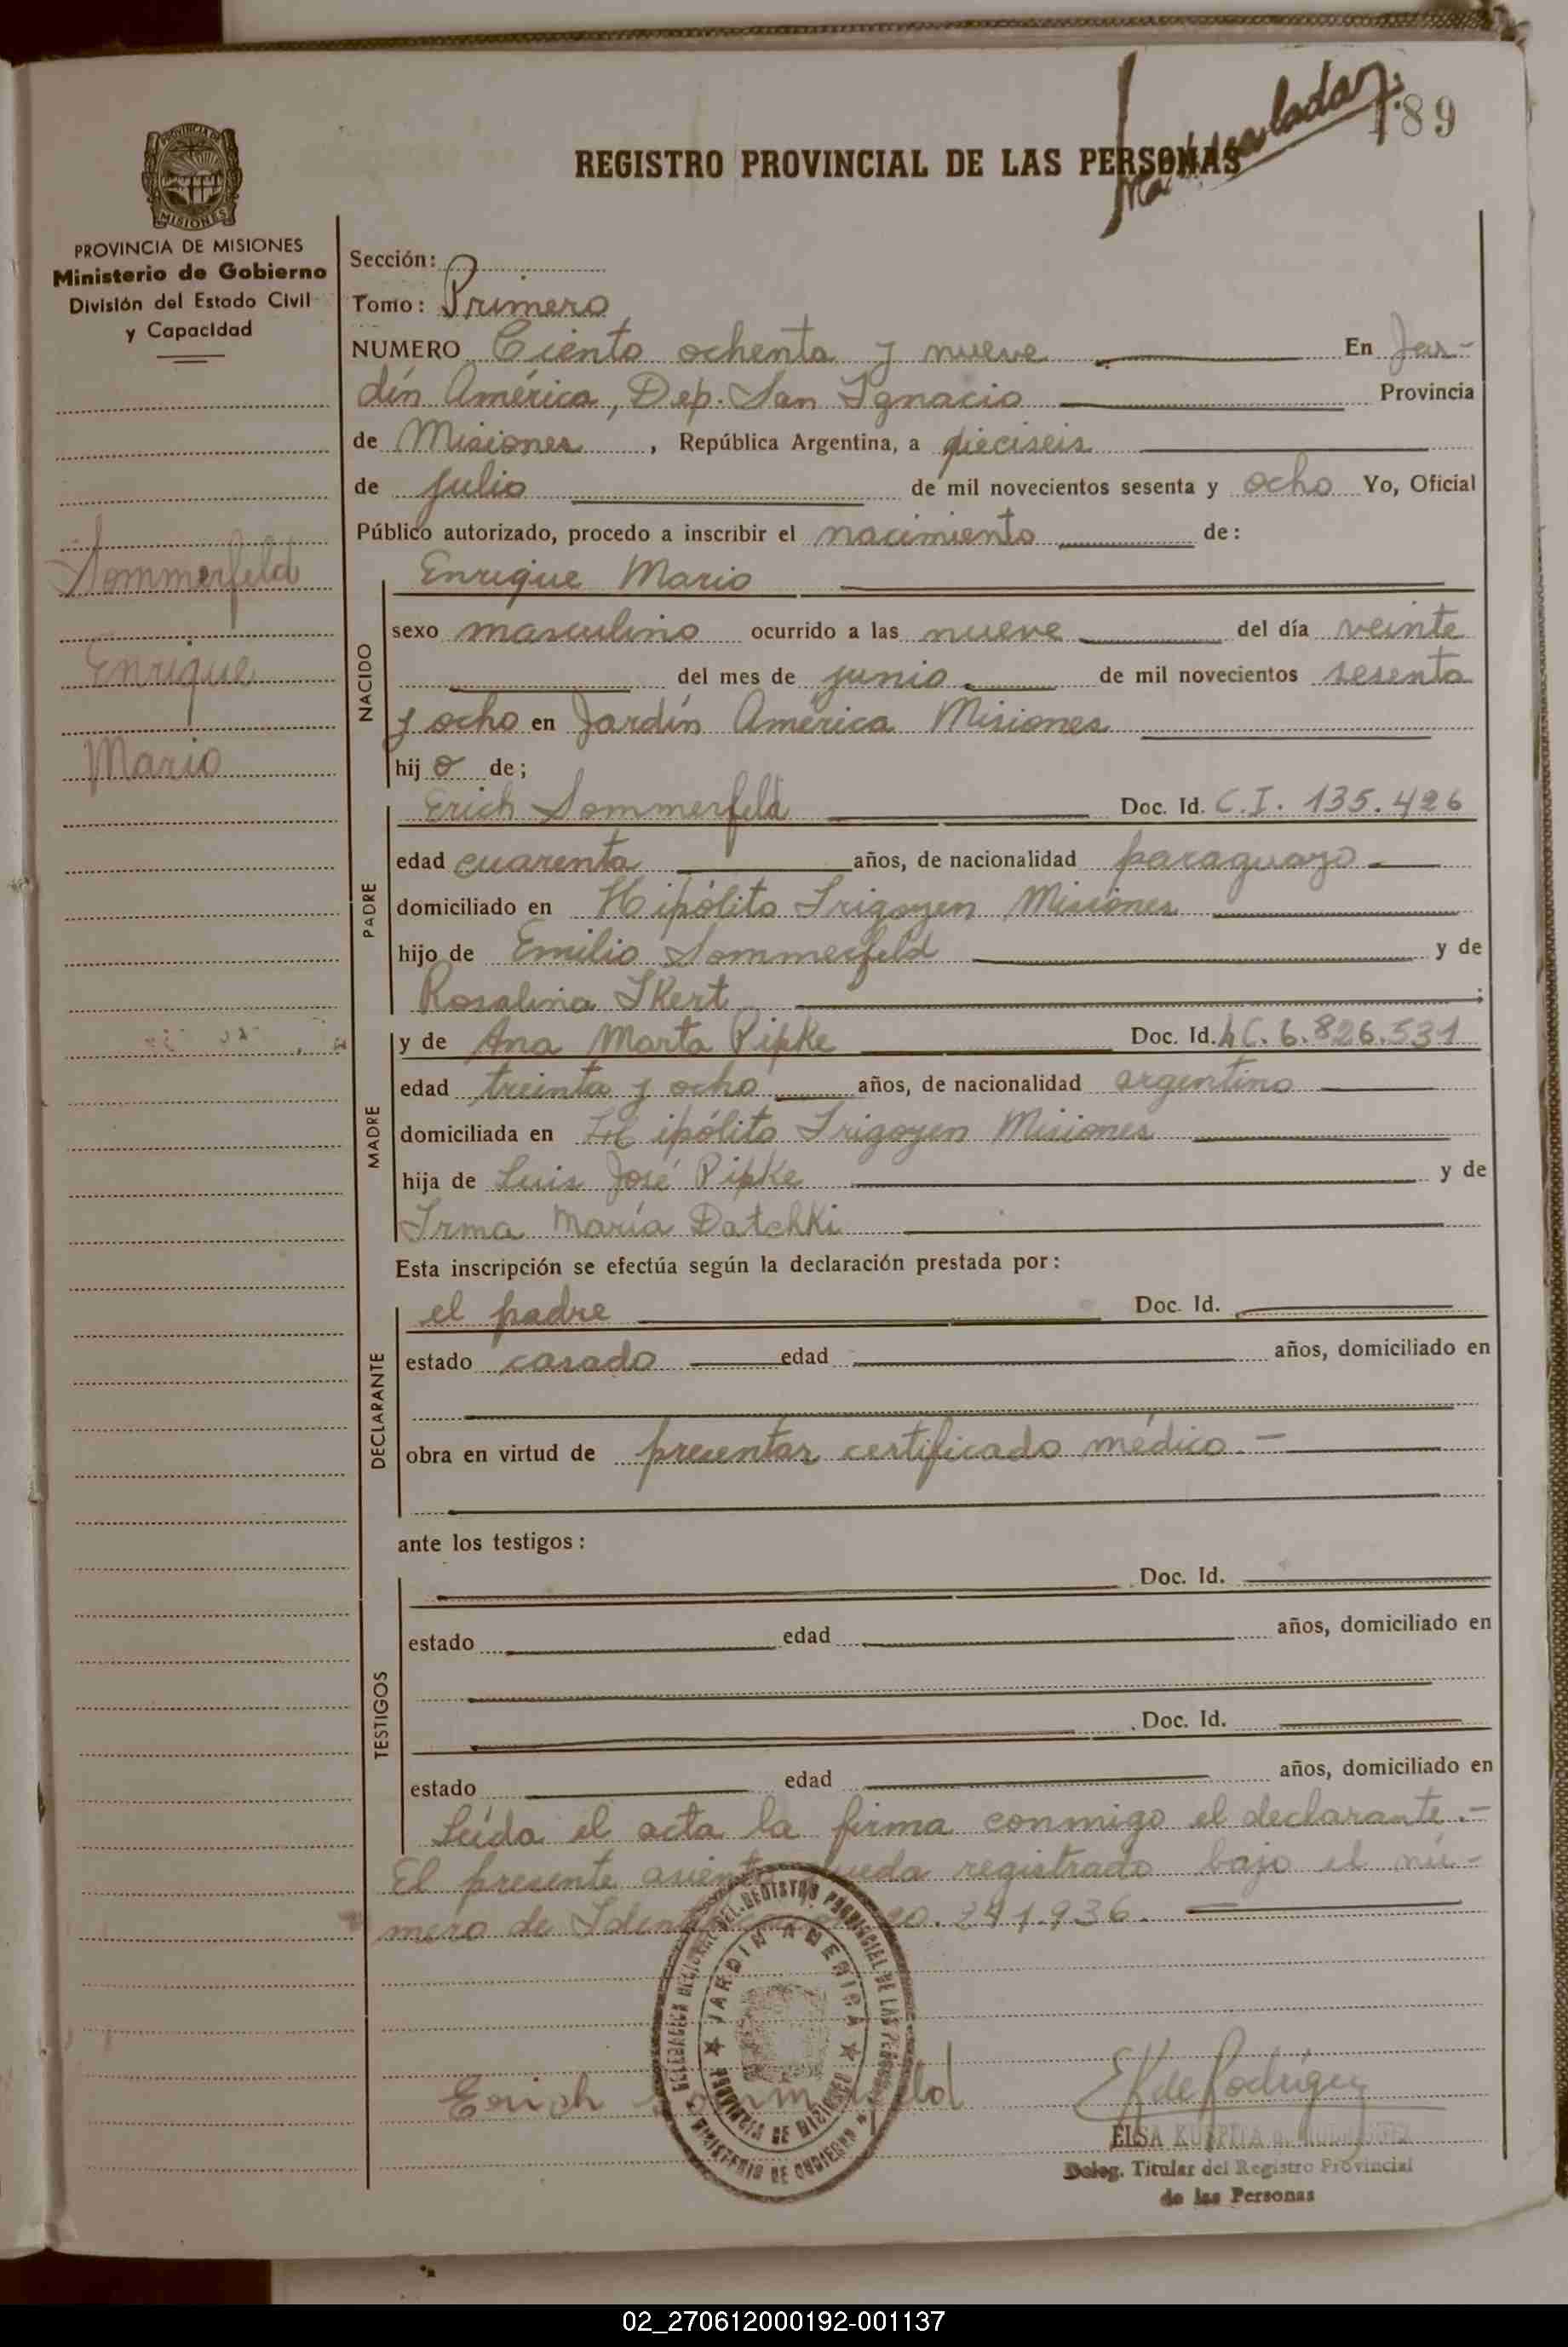 189
REGISTRO PROVINCIAL DE LAS PERSONAS
PROVINCIA DE MISIONES
PROVINCIA DE MISIONES
Ministerio de Gobierno
División del Estado Civil
y Capacidad
Sommerfeld
Enrique
Mario
Sección:
Tomo: Primero
NUMERO Ciento ochenta y nueve En Jar-
dín América, Dep. San Ignacio Provincia
de Misiones, República Argentina, a dieciseis
de julio de mil novecientos sesenta y ocho Yo, Oficial
Público autorizado, procedo a inscribir el nacimiento de:
NACIDO
Enrique Mario
sexo masculino ocurrido a las nueve del día veinte
del mes de junio de mil novecientos sesenta
y ocho en Jardín América Misiones
hijo de;
PADRE
Erich Sommerfeld Doc. Id. C.I. 135.426
edad cuarenta años, de nacionalidad paraguayo
domiciliado en Hipólito Irigoyen Misiones
hijo de Emilio Sommerfeld y de
Rosalina Ikert ;
MADRE
y de Ana Marta Pipke Doc. Id. LC. 6.826.531
edad treinta y ocho años, de nacionalidad argentina
domiciliada en Hipólito Irigoyen Misiones
hija de Luis José Pipke y de
Irma María Datchki
Esta inscripción se efectúa según la declaración prestada por:
DECLARANTE
el padre Doc. Id.
estado casado edad años, domiciliado en
obra en virtud de presentar certificado médico.-
ante los testigos:
TESTIGOS
Doc. Id.
estado edad años, domiciliado en
Doc. Id.
estado edad años, domiciliado en
Leída el acta la firma conmigo el declarante.-
El presente asiento queda registrado bajo el nú-
mero de 20.241.936.
DELEGACION DEL REGISTRO PROVINCIAL DE LAS PERSONAS
JARDIN AMERICA
PROVINCIA DE MISIONES
MINISTERIO DE GOBIERNO
Erich Sommerfeld
EK de Rodríguez
ELSA
Deleg. Titular del Registro Provincial
de las Personas
02_270612000192-001137